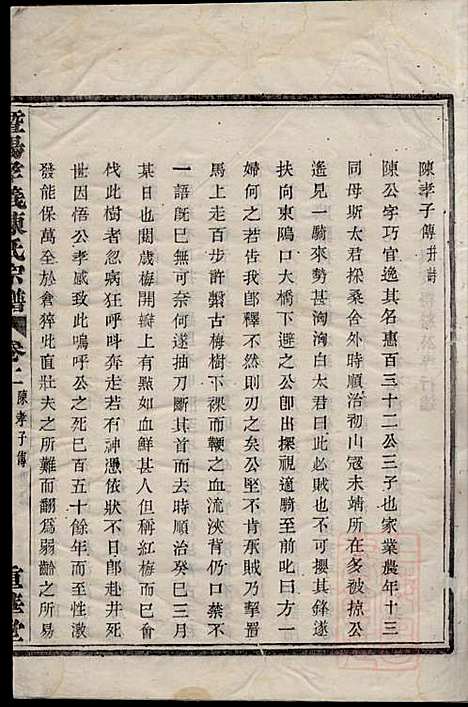 陳孝子傳并詩
陳公字巧官逸其名惠百三十二公三子也家業農年十三
同母斯太君採桑舍外時順治初山冦未靖所在多被掠公
遙見一騎來勢甚洶洶白太君曰此必賊不可攖其鋒遂
扶向東隝口大橋下避之公卽出探視適騎至曰方一
婦何之若告我卽釋不然刃之矣公堅不肯承賊乃挈置
馬上走百步許繫古梅樹下裸而鞭之血流浹背仍口葉不
一語旣已無可奈何遂抽刀斷其首而去時順治癸巳三月
某日也閱歲梅開瓣上有血如血鮮甚人但稱紅梅而已會
伐此樹者忽病狂呼呌奔突若有神憑依狀不日卽赴井死
世因悟公孝感致此嗚呼公之死已百五十餘年而其性激
發能保萬全於倉猝此直壯夫之所難而翻爲弱齡之所易
暨陽孝義陳氏宗譜
卷十二
陳孝子傳
重華堂